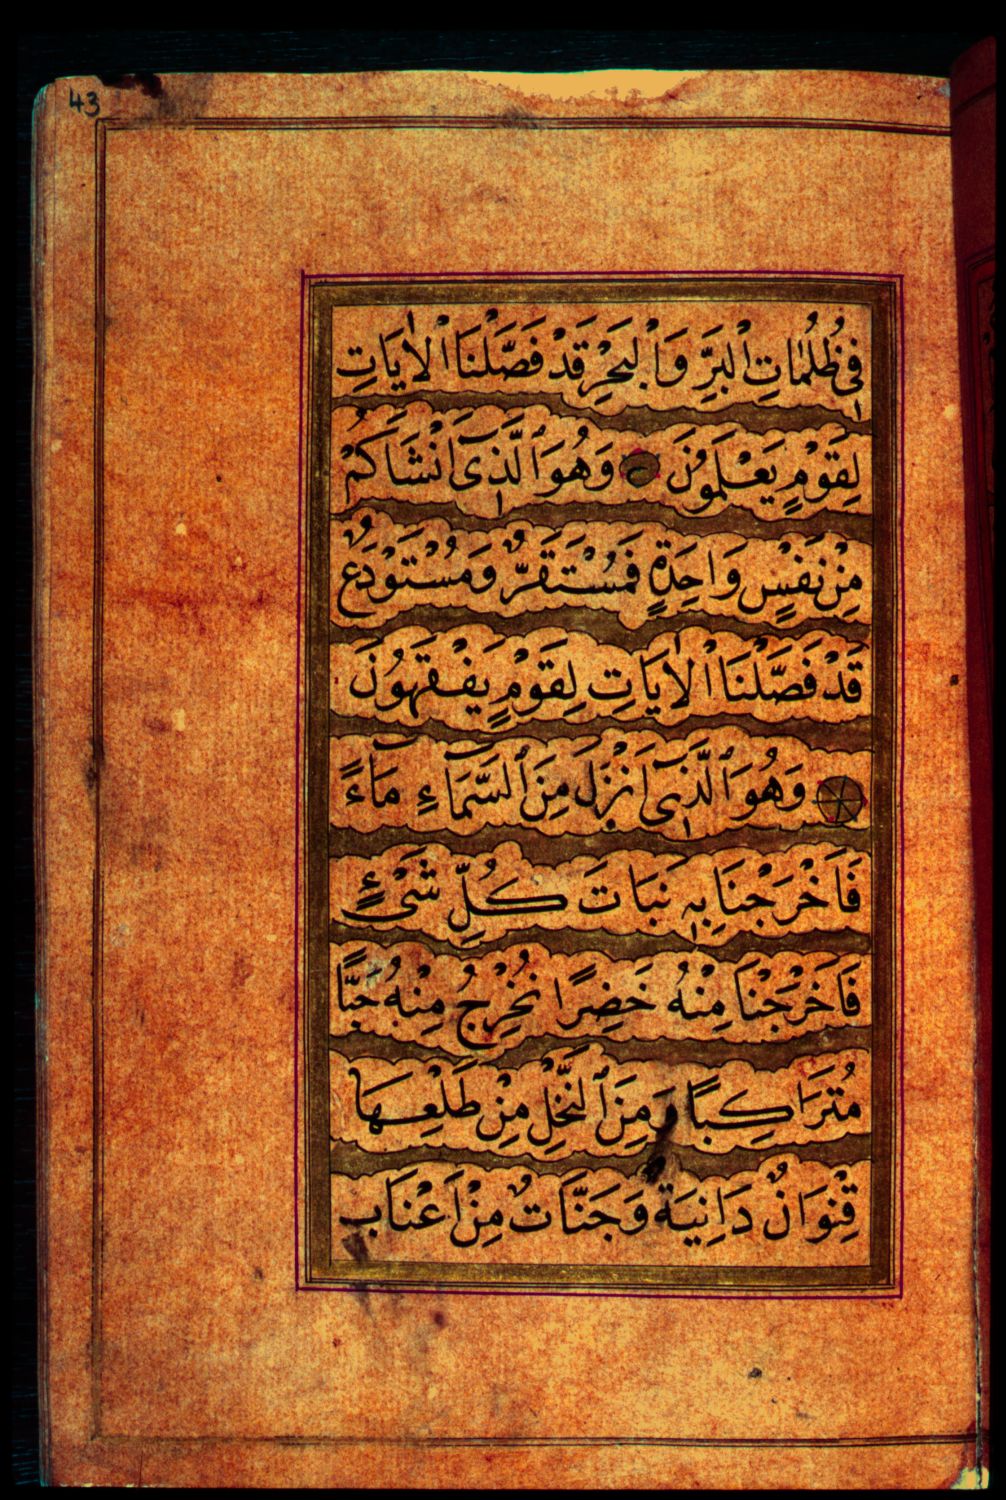 43
فِى ظُلُمَاتِ الْبَرِّ وَالْبَحْرِ قَدْ فَصَّلْنَا الْاٰيَاتِ
لِقَوْمٍ يَعْلَمُونَ وَهُوَ الَّذٖٓى اَنْشَاَكُمْ
مِنْ نَفْسٍ وَاحِدَةٍ فَمُسْتَقَرٌّ وَمُسْتَوْدَعٌ
قَدْ فَصَّلْنَا الْاٰيَاتِ لِقَوْمٍ يَفْقَهُونَ
وَهُوَ الَّذٖٓى اَنْزَلَ مِنَ السَّمَٓاءِ مَٓاءً
فَاَخْرَجْنَا بِهٖ نَبَاتَ كُلِّ شَىْءٍ
فَاَخْرَجْنَا مِنْهُ خَضِرًا نُخْرِجُ مِنْهُ حَبًّا
مُتَرَاكِبًا وَمِنَ النَّخْلِ مِنْ طَلْعِهَا
قِنْوَانٌ دَانِيَةٌ وَجَنَّاتٌ مِنْ اَعْنَابٍ